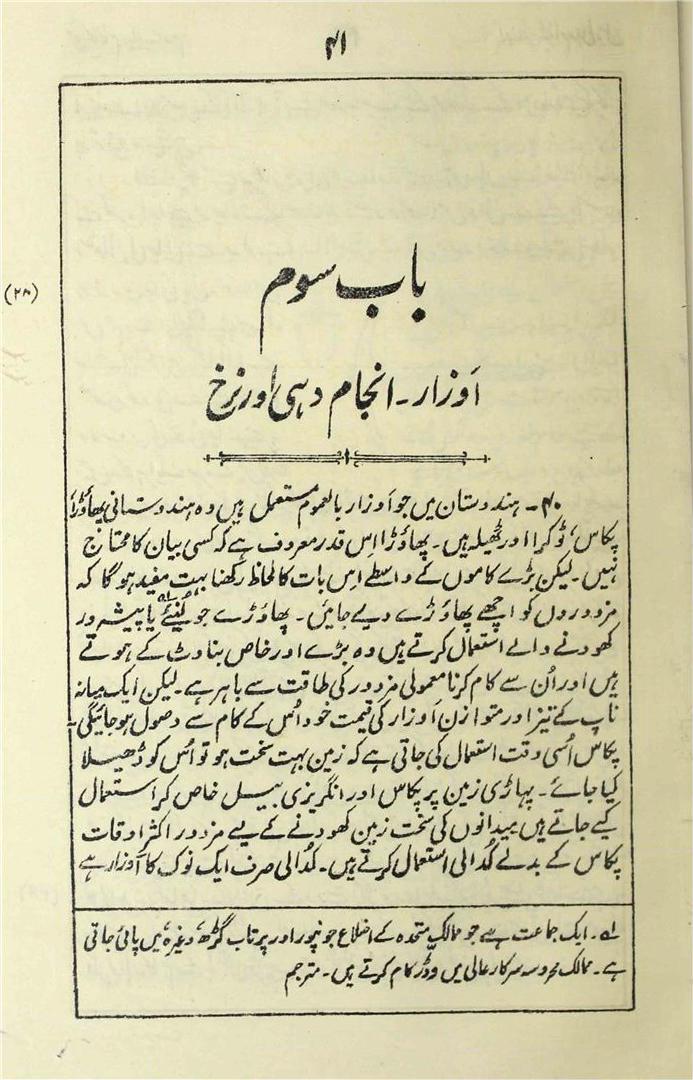 ۴۱
باب سوم
(۲۸)
اَوزار۔ انجام دہی اور نرخ
۴۰۔ ہندوستان میں جو اَوزار بالعموم مستعمل ہیں وہ ہندوستانی پھاؤڑا
پکاس، ٹوکرا اور ٹھیلہ ہیں۔ پھاؤڑا اِس قدر معروف ہے کہ کسی بیان کا محتاج
نہیں۔ لیکن بڑے کاموں کے واسطے اِس بات کا لحاظ رکھنا بہت مفید ہوگا کہ
مزدوروں کو اچھے پھاؤڑے دیے جائیں۔ پھاؤڑے جو لُنیئے لہ یا پیشہ ور
کھودنے والے استعمال کرتے ہیں وہ بڑے اور خاص بناوٹ کے ہوتے
ہیں اور اُن سے کام کرنا معمولی مزدور کی طاقت سے باہر ہے۔ لیکن ایک میانہ
ناپ کے تیز اور متوازن اَوزار کی قیمت خود اُس کے کام سے وصول ہوجائیگی۔
پکاس اُسی وقت استعمال کی جاتی ہے کہ زمین بہت سخت ہو تو اُس کو ڈھیلا
کیا جائے۔ پہاڑی زمین پر پکاس اور انگریزی بیل خاص کر استعمال
کیے جاتے ہیں میدانوں کی سخت زمین کھودنے کے لیے مزدور اکثر اوقات
پکاس کے بدلے کُدالی استعمال کرتے ہیں۔ کُدالی صرف ایک نوک کا اَوزار ہے
لہ۔ ایک جماعت ہے جو ممالک متحدہ کے اضلاع جونپور اور پرتاب گڑھ وغیرہ میں پائی جاتی
ہے۔ ممالک محروسہ سرکار عالی میں وڈر کام کرتے ہیں۔ مترجم